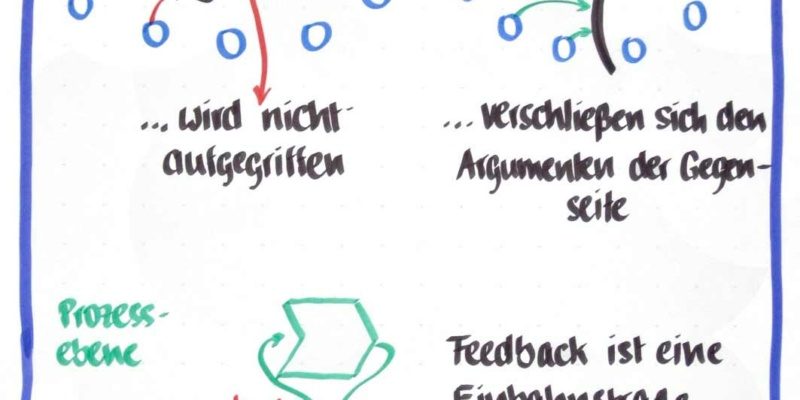 ... wird nicht-
aufgegriffen
... verschließen sich den
Argumenten der Gegen-
seite
Prozess-
ebene
Feedback ist eine